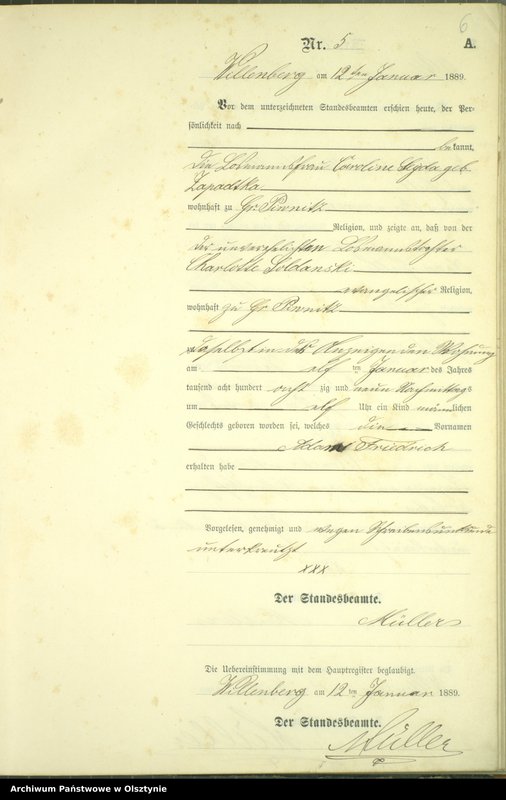 6
Nr. 5 A.
Willenberg am 12 ten Januar 1889.
Vor dem unterzeichneten Standesbeamten erschien heute, der Per-
sönlichkeit nach
bekannt,
die Losmannsfrau Caroline geb.
Zapadtka
wohnhaft zu Gr. Piwnitz
Religion, und zeigte an, daß von der
der unverehelichten Losmannstochter
Charlotte Soldanski
evangelischer Religion,
wohnhaft zu Gr. Piwnitz
daselbst in des Anzeigenden Wohnung
am elf ten Januar des Jahres
tausend acht hundert acht zig und neun Nachmittags
um elf Uhr ein Kind männlichen
Geschlechts geboren worden sei, welches die Vornamen
Adam Friedrich
erhalten habe
Vorgelesen, genehmigt und wegen Schreibensunkunde
unterkreuzt
xxx
Der Standesbeamte.
Müller
Die Uebereinstimmung mit dem Hauptregister beglaubigt.
Willenberg am 12 ten Januar 1889.
Der Standesbeamte.
Müller
Archiwum Państwowe w Olsztynie